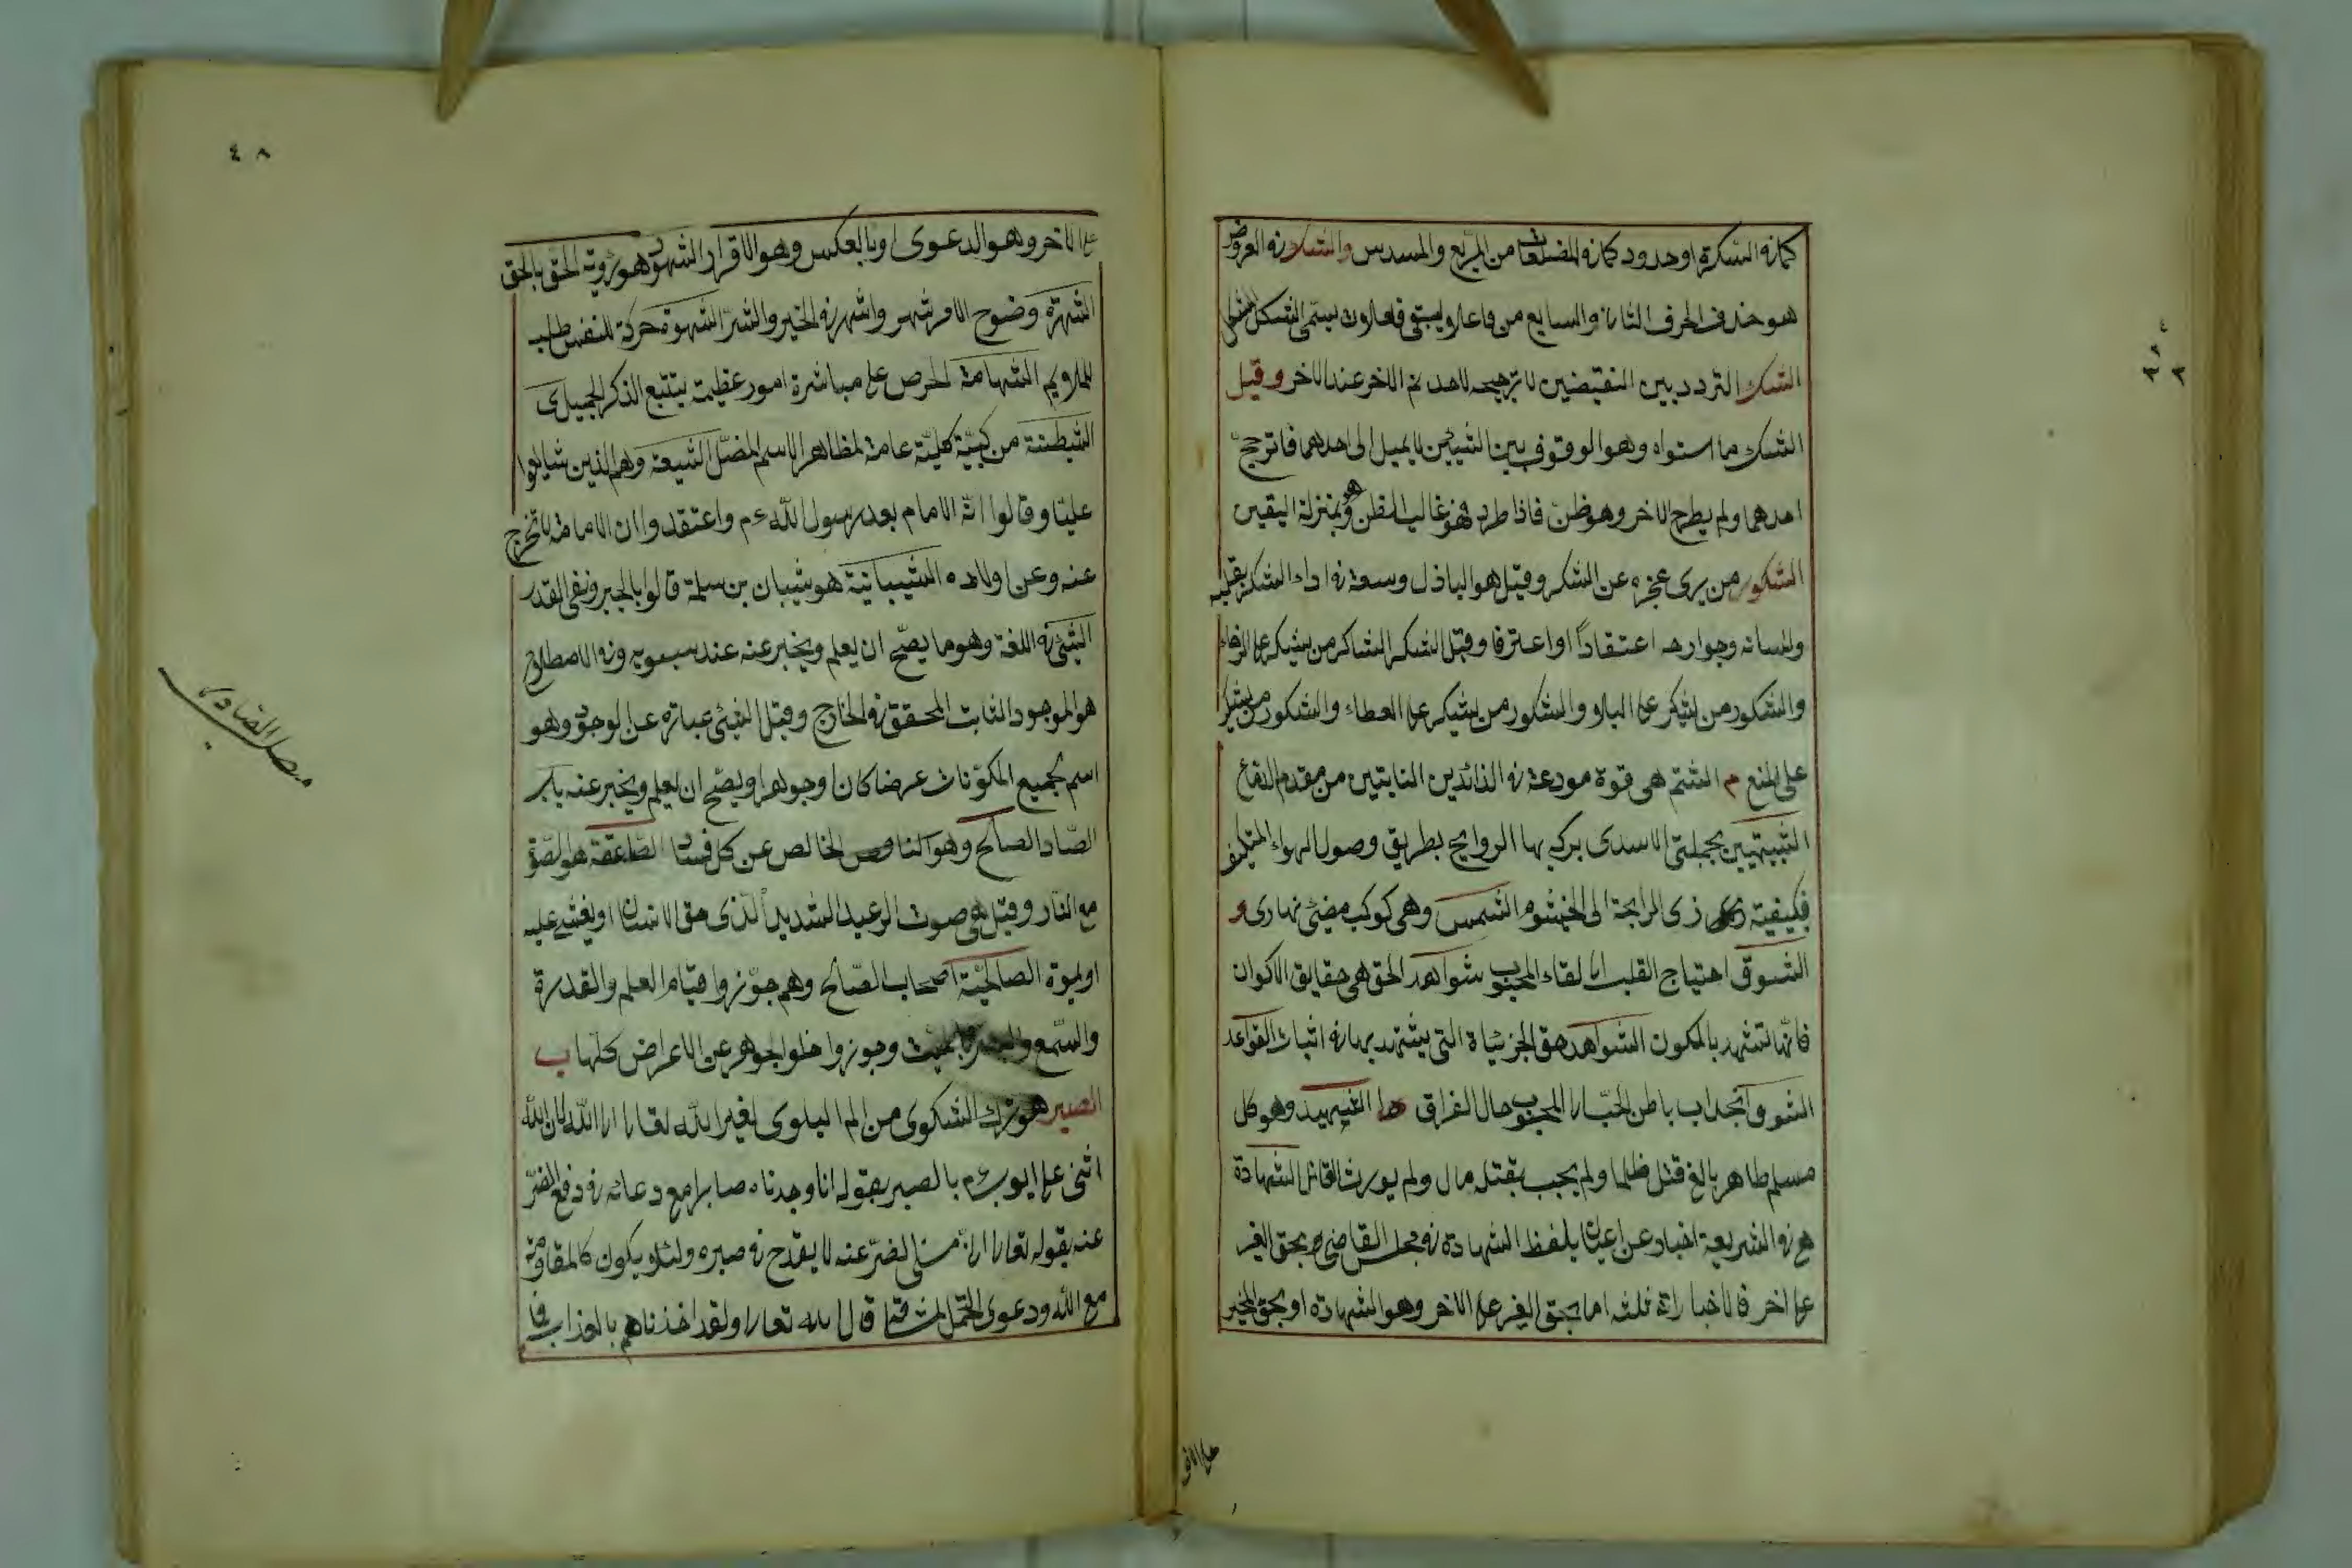 كما في الشكرة او حدود كما في المضلعات من المربع والمسدس والشكل في العروض
هو حذف الحرف الثاني والسابع من فاعلاتن ليبقى فعلات يسمى الشكل
الشك التردد بين النقيضين لا ترجيح لاحدهم الاخر عند الاخر وقيل
الشك ما استواه وهو الوقوف بين الشيئين لا يميل الى احدهما فاترجح
احدهما ولم يطرح الاخر وهو ظن فاذا طرد فهو غالب الظن وهو بمنزلة اليقين
الشكور من يرى عجزه عن الشكر وقيل هو الباذل وسعه في اداء الشكر بقلبه
ولسانه وجوارحه اعتقاداً او اعترفا وقيل الشكر الشاكر من يشكر على الرخاء
والشكور من يشكر على البلاء والشكور من يشكر على العطاء والشكور من يشكر
على المنع م الشم هي قوة مودعة في الزائدين النابتين من مقدم الدماغ
الشبيهتين بحملتي الاسدى يركب بها الروايح بطريق وصول الهواء المتكيف
فكيفية زى الرايحة الى الخيشوم الشمس وهي كوكب مضئ نهارى و
الشوق احتياج القلب الى لقاء المحبوب شواهد الحق هي حقايق الاكوان
فانها تشهد بالمكون الشواهد حق الجزئياة التى يشتهد بها في اثبات القواعد
الشوق انجذاب باطن المحب الى المحبوب حال الفراق هدا الشهيد وهو كل
مسلم طاهر بالغ قتل ظلما ولم يجب بقتله مال ولم يورث القاتل الشهادة
هي في الشريعة اخبار عن اعيان بلفظ الشهادة في مجلس القاضى بحق الغير
على اخر فالاخباراة ثلثة اما بحق الغير على الاخر وهو الشهادة او بحق المخبر
على الاخر
٤٨
على الاخر وهو الدعوى او بالعكس وهو الاقرار الشهود هو رؤية الحق بالحق
الشهرة وضوح الامر شهر واشهر في الخير والشر الشهوة حركة للنفس طلب
للملايم الشهامة الحرص على مباشرة امور عظيمة يتتبع الذكر الجميل ى
الشيطنة مرتبة كلية عامة لمظاهر الاسم المضل الشيعة وهم الذين شايعوا
عليا وقالوا انه الامام بعد رسول الله ءم واعتقدوا ان الامامة لا تخرج
عنه وعن اولاده الشيبانية هو شيبان بن سلمة قالوا بالجبر ونفى القدر
الشئ في اللغة وهو ما يصح ان يعلم ويخبر عنه عند سيبويه وفي الاصطلاح
هو الموجود الثابت المحقق في الخارج وقيل الشئ عبارة عن الوجود وهو
اسم لجميع المكونات عرضا كان او جوهرا ويصح ان يعلم ويخبر عنه باب
الصاد الصالح وهو الخالص عن كل فساد الصاعقة هو الصوت
مع النار وقيل هي صوت الرعد الشديد الذى حق الانسان او يغشى عليه
او يموة الصالحية اصحاب الصالح وهم جوزوا قيام العلم والقدرة
والسمع والبصر بالميت وجوزوا خلو الجوهر عن الاعراض كلها ب
الصبر هو ترك الشكوى من الم البلوى لغير الله تعالى الى الله لان الله
اثنى على ايوب ءم بالصبر بقوله انا وجدناه صابرا مع دعائه في دفع الضر
عنه بقوله تعالى انى مسنى الضر عنه لا يقدح في صبره ولئلا يكون كالمقاومة
مع الله ودعوى التحمل لمشاقه قال الله تعالى ولقد اخذناهم بالعذاب فما
فصل الصاد